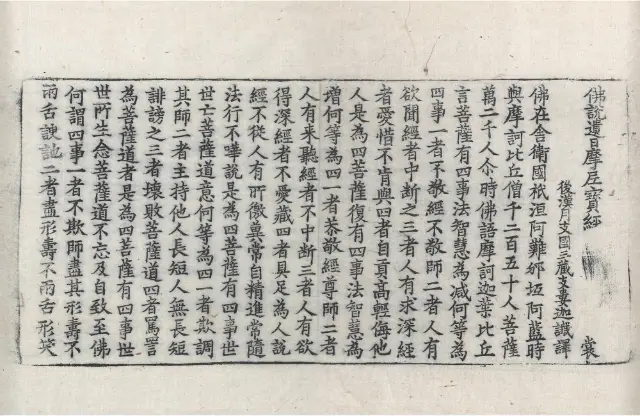 佛說遺日摩尼寶經 裳
後漢月支國三藏支婁迦讖譯
佛在舍衛國祇洹阿難邠坻阿藍時
與摩訶比丘僧千二百五十人菩薩
萬二千人尒時佛語摩訶迦葉比丘
言菩薩有四事法智慧為減何等為
四事一者不敬經不敬師二者人有
欲聞經者中斷之三者人有求深經
者愛惜不肯與四者自貢高輕侮他
人是為四菩薩復有四事法智慧為
增何等為四一者恭敬經尊師二者
人有来聽經者不中斷三者人有欲
得深經者不愛藏四者具足為人說
經不從人有所徼冀常自精進常隨
法行不嘩說是為四菩薩有四事世
世亡菩薩道意何等為四一者欺調
其師二者主持他人長短人無長短
誹謗之三者壞敗菩薩道四者罵詈
為菩薩道者是為四菩薩有四事世
世所生念菩薩道不忘及自致至佛
何謂四事一者不欺師盡其形壽不
兩舌諛訑二者盡形壽不兩舌形笑